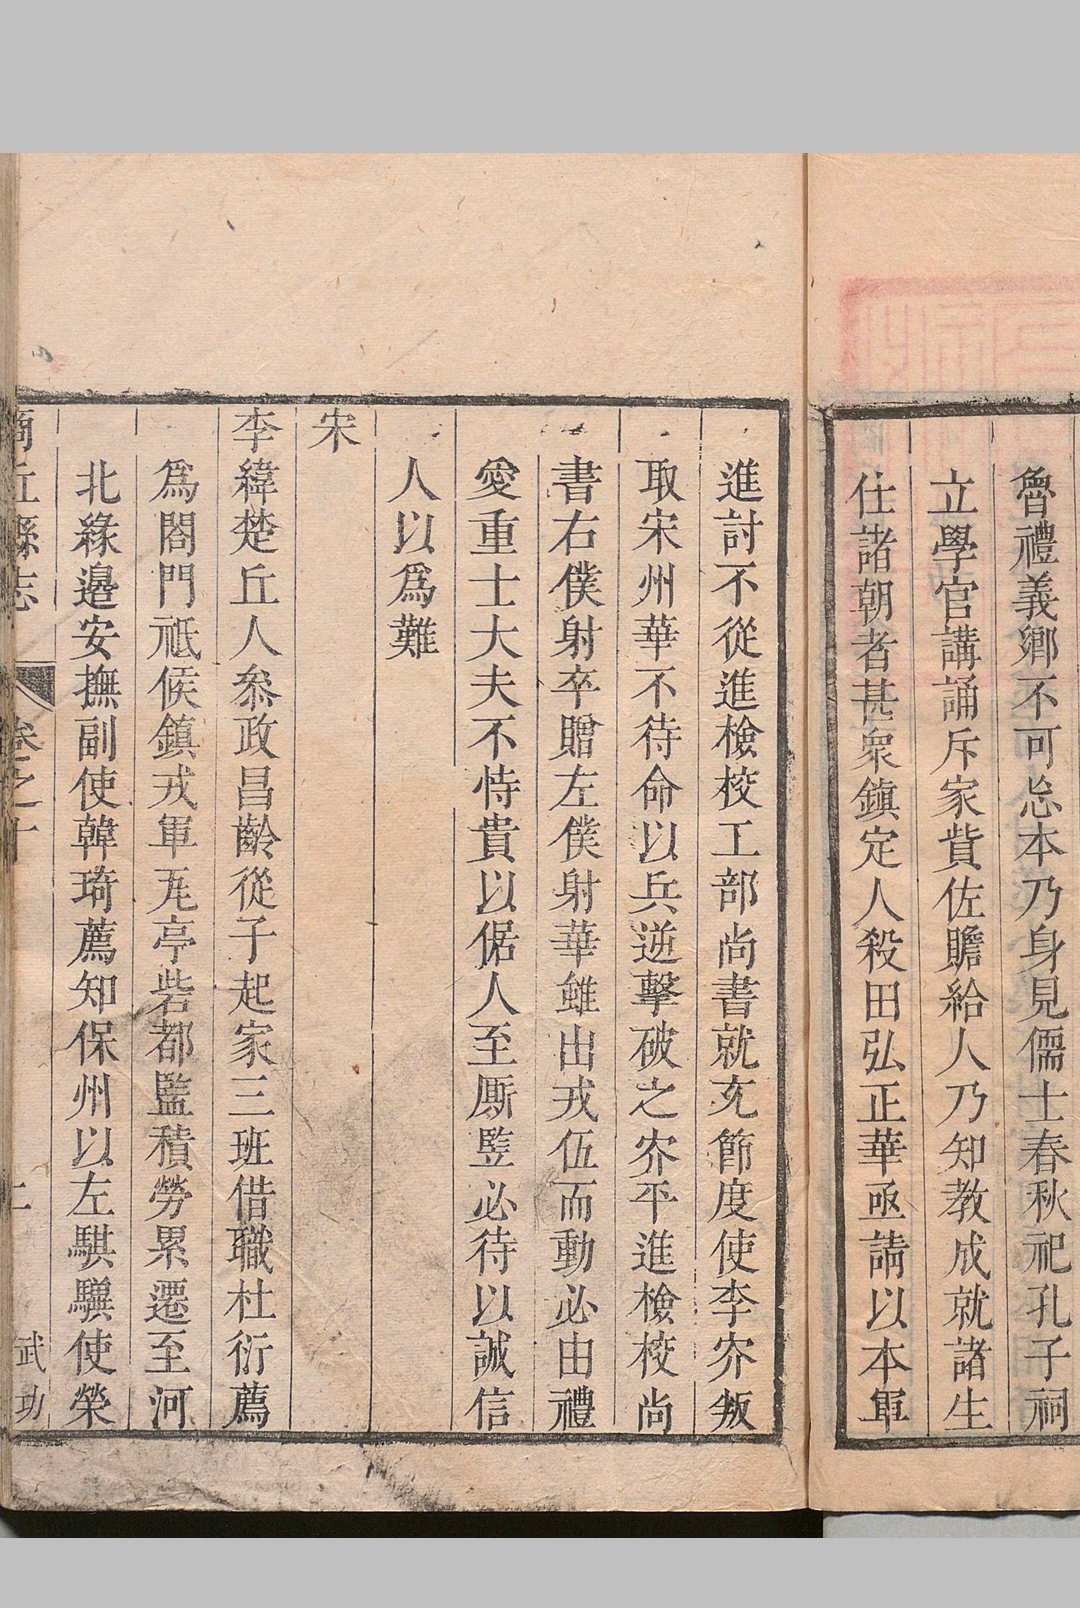 魯禮義鄉不可忘本乃身見儒士春秋祀孔子祠
立學官講誦斥家貲佐贍給人乃知教成就諸生
仕諸朝者甚衆鎮定人殺田弘正華亟請以本軍
進討不從進檢校工部尚書就充節度使李㝏叛
取宋州華不待命以兵逆擊破之㝏平進檢校尚
書右僕射卒贈左僕射華雖出戎伍而動必由禮
愛重士大夫不恃貴以倨人至厮豎必待以誠信
人以爲難
宋
李緯楚丘人叅政昌齡從子起家三班借職杜衍薦
爲閤門祗候鎮戎軍瓦亭砦都監積勞累遷至河
北緣邊安撫副使韓琦薦知保州以左騏驥使榮
商丘縣志 卷之十 武功